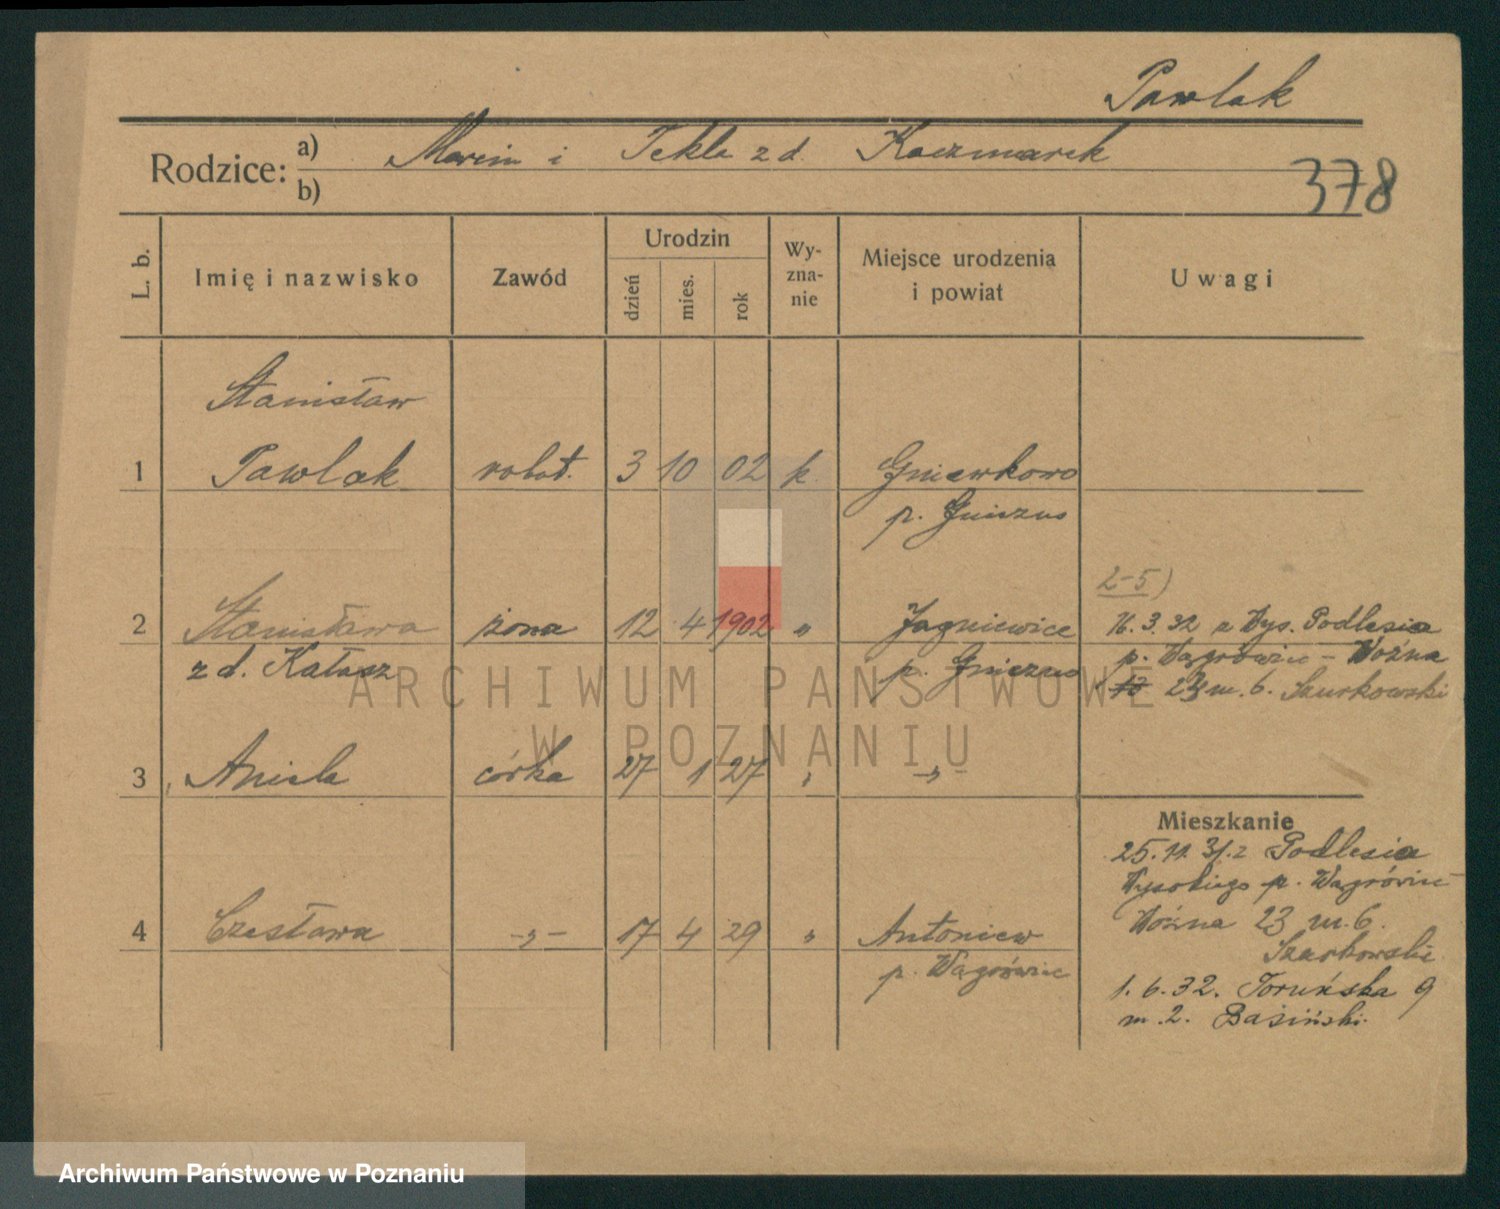 Pawlak
Rodzice: a) Marcin i Tekla z d. Kaczmarek
b)
378
L. b.
Imię i nazwisko
Zawód
Urodzin
dzień
mies.
rok
Wy-
zna-
nie
Miejsce urodzenia
i powiat
Uwagi
Stanisław
1 Pawlak robot. 3 10 02 k. Gniewkowo
p. Gniezno
2-5)
2 Stanisława żona 12 4 1902 " Jagniewice 16.3.32 z Wys. Podlesia
z d. Kałasz p. Gniezno p. Wągrówiec - Woźna
23 m. 6. Szurkowski
3 Aniela córka 27 1 27 " -"-
Mieszkanie
25.11.31. z Podlesia
Wysokiego p. Wągrówiec
4 Czesława -"- 17 4 29 " Antoniew Woźna 23 m. 6.
p. Wągrówiec Szurkowski
1.6.32. Toruńska 9
m. 2. Basiński.
ARCHIWUM PAŃSTWOWE
W POZNANIU
Archiwum Państwowe w Poznaniu